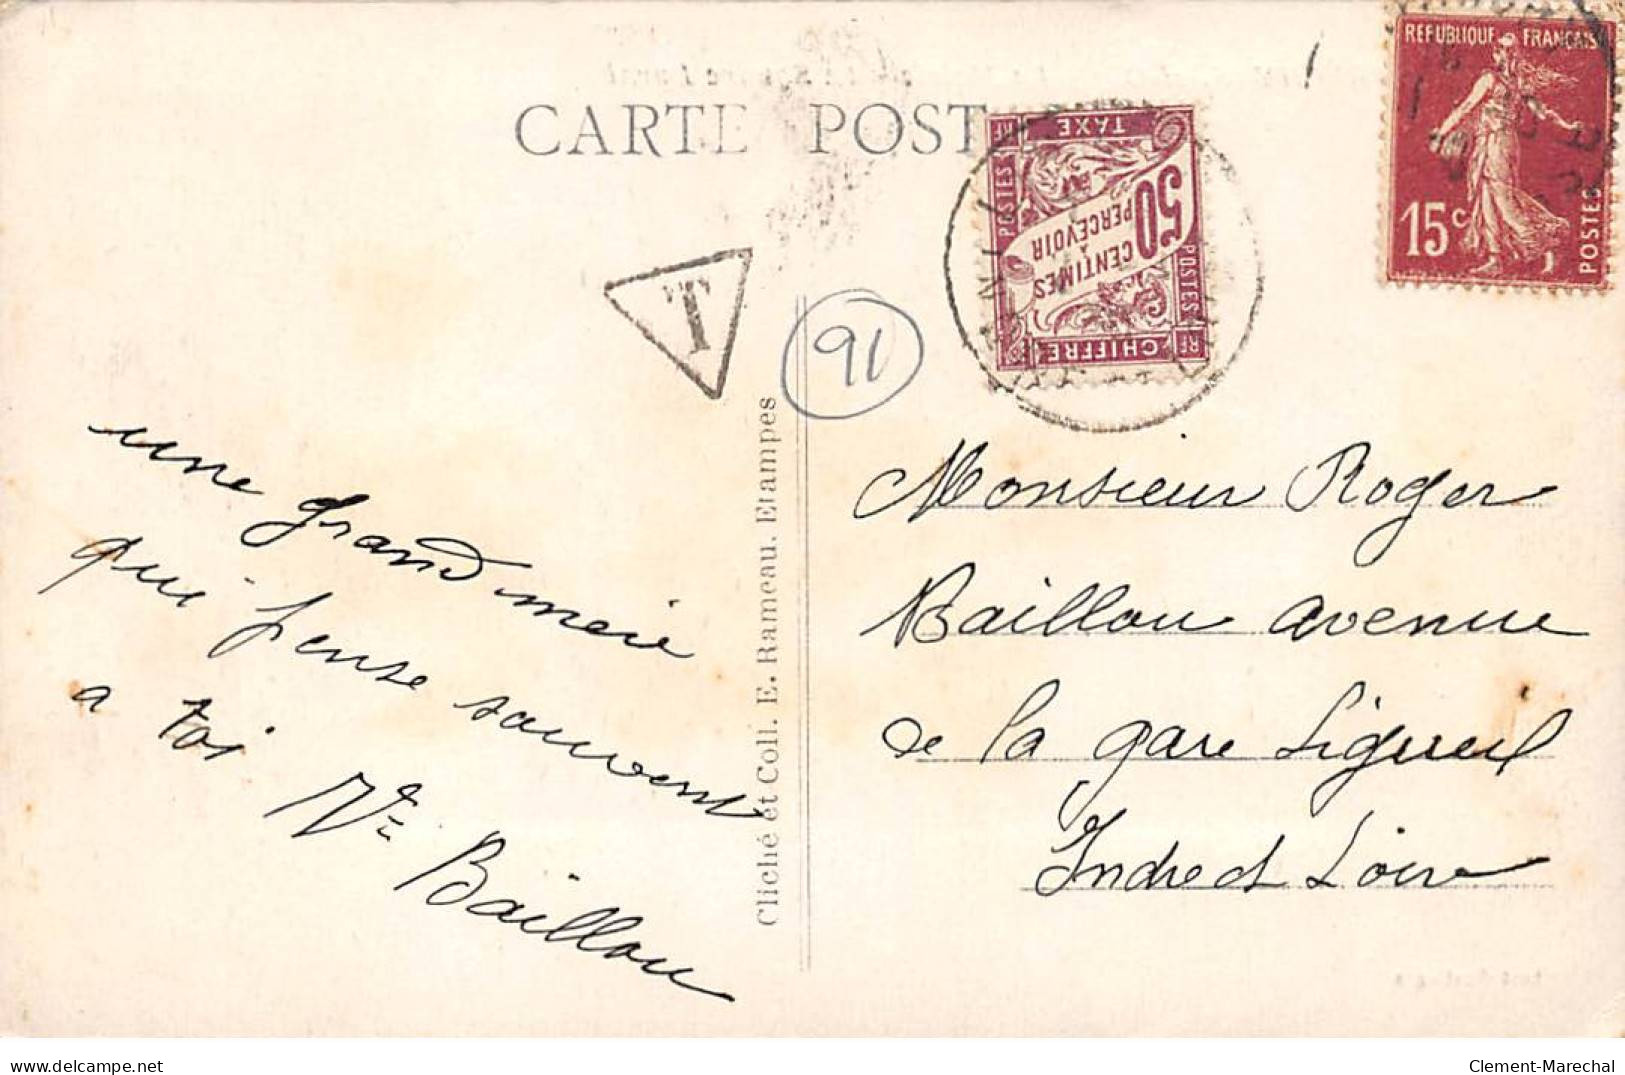 CARTE POST
REPUBLIQUE FRANÇAISE
15c
POSTES
TAXE
RF
POSTES
50
CENTIMES
A
PERCEVOIR
POSTES
CHIFFRE
RF
T
91
une grand meie
qui pense souvent
a toi Vve Baillou
Cliché et Coll. E. Rameau. Etampes
Monsieur Roger
Baillou avenue
de la gare Ligueil
Indre et Loire
www.delcampe.net
Clement-Marechal